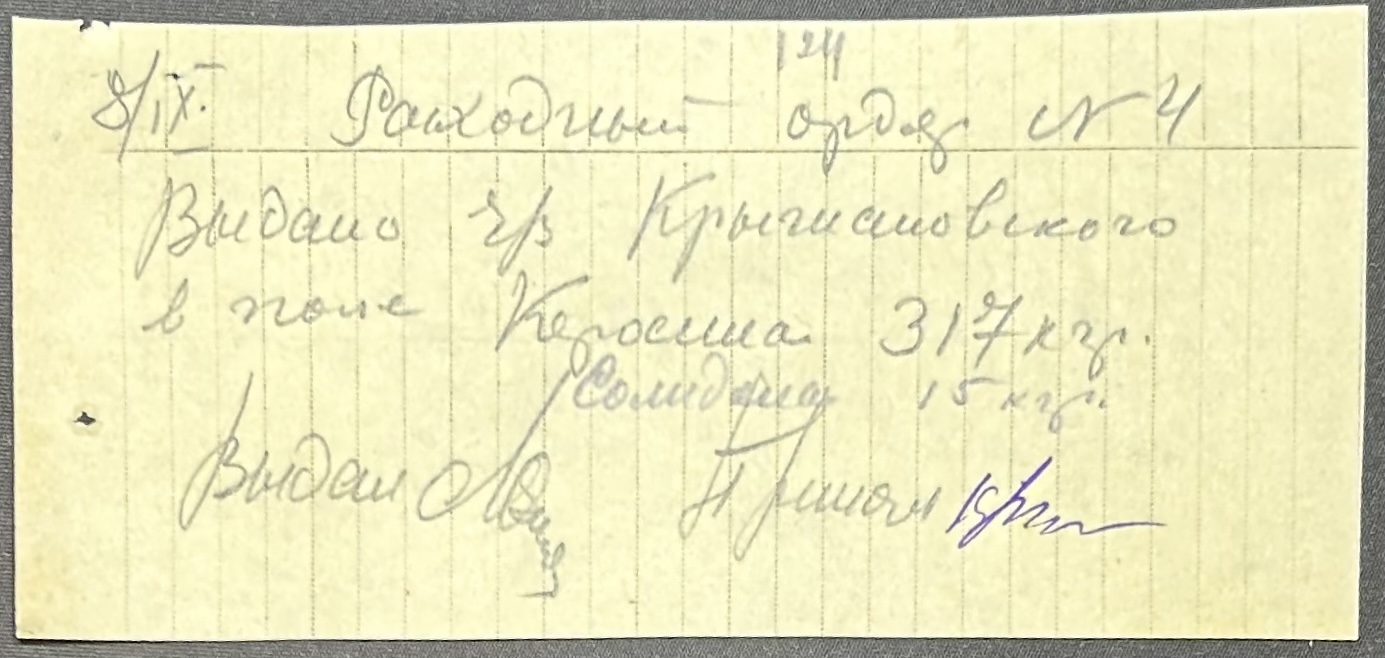 124
8/IX. Расходный ордер N 4
Выдано ч/з Крыжановского
в поле Керосина 317 кгр.
Солидола 15 кгр.
Выдал Принял